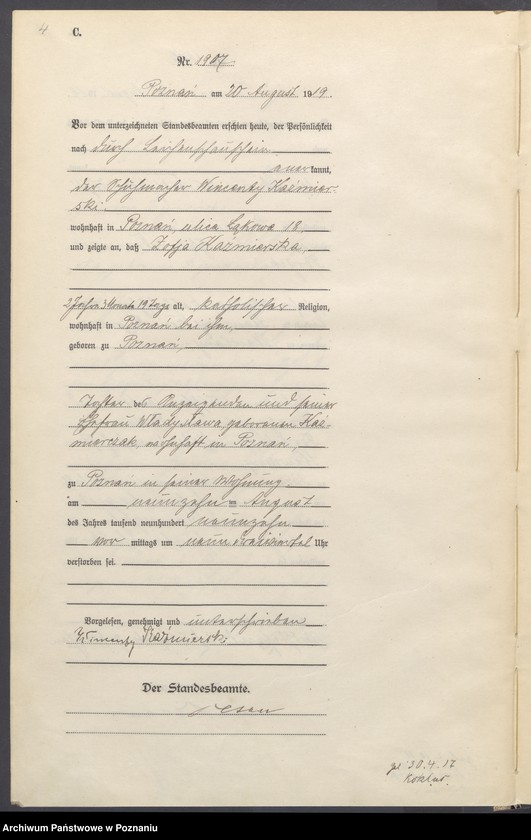 4 C.
Nr. 1907
Poznań am 20 August 1919.
Vor dem unterzeichneten Standesbeamten erschien heute, der Persönlichkeit
nach durch Leichenschauschein
anerkannt,
der Schuhmacher Wincenty Kaźmier-
ski
wohnhaft in Poznań, ulica Łąkowa 18,
und zeigte an, daß Zofja Kaźmierska,
2 Jahre 3 Monate 19 Tage alt, katholischer Religion,
wohnhaft in Poznań bei ihm,
geboren zu Poznań,
Tochter des Anzeigenden und seiner
Ehefrau Władysława geborenen Kaź-
mierczak, wohnhaft in Poznań,
zu Poznań in seiner Wohnung,
am neunzehn ten August
des Jahres tausend neunhundert neunzehn
vor mittags um neun dreiviertel Uhr
verstorben sei.
Vorgelesen, genehmigt und unterschrieben
Wincenty Kaźmierski
Der Standesbeamte.
20.4.17
Archiwum Państwowe w Poznaniu